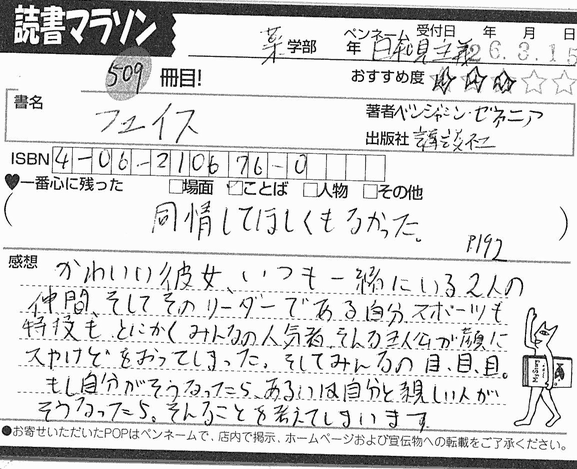 読書マラソン
薬学部 年 ペンネーム 日和見主義 受付日 年 月 日 26.3.15
509 冊目! おすすめ度 ★★★☆☆
書名 フェイス
著者 ベンジャミン・ゼファニア
出版社 講談社
ISBN 4-06-210676-0
♥一番心に残った □場面 ☑ことば □人物 □その他
(同情してほしくもなかった。 P192)
感想 かわいい彼女、いつも一緒にいる2人の
仲間、そしてそのリーダーである自分。スポーツも
特技も、とにかくみんなの人気者。そんな主人公が顔に
大やけどをおってしまった。そしてみんなの目、目、目。
もし自分がそうなったら、あるいは自分と親しい人が
そうなったら。そんなことを考えてしまいます。
●お寄せいただいたPOPはペンネームで、店内で掲示、ホームページおよび宣伝物への転載をご了承ください。